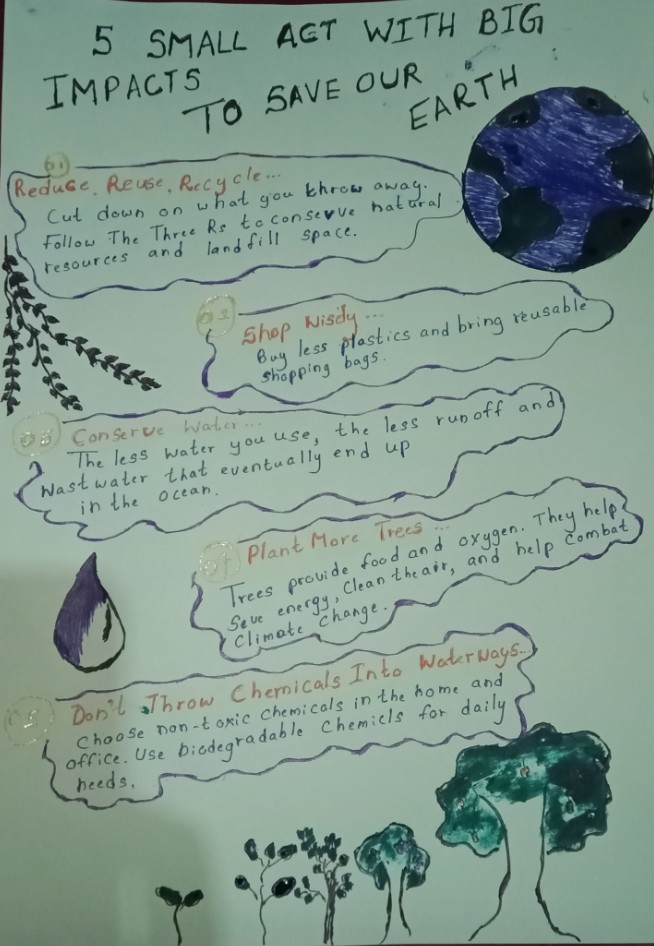 5 SMALL ACT WITH BIG
IMPACTS
TO SAVE OUR
EARTH
01
Reduce, Reuse, Recycle...
Cut down on what you throw away.
Follow The Three Rs to conserve natural
resources and landfill space.
02
Shop Wisely...
Buy less plastics and bring reusable
shopping bags.
03
Conserve Water...
The less water you use, the less runoff and
Wastwater that eventually end up
in the ocean.
04
Plant More Trees...
Trees provide food and oxygen. They help
Seve energy, Clean the air, and help Combat
Climate Change.
05
Don't Throw Chemicals Into Waterways...
Choose non-toxic Chemicals in the home and
office. Use biodegradable Chemicls for daily
needs.